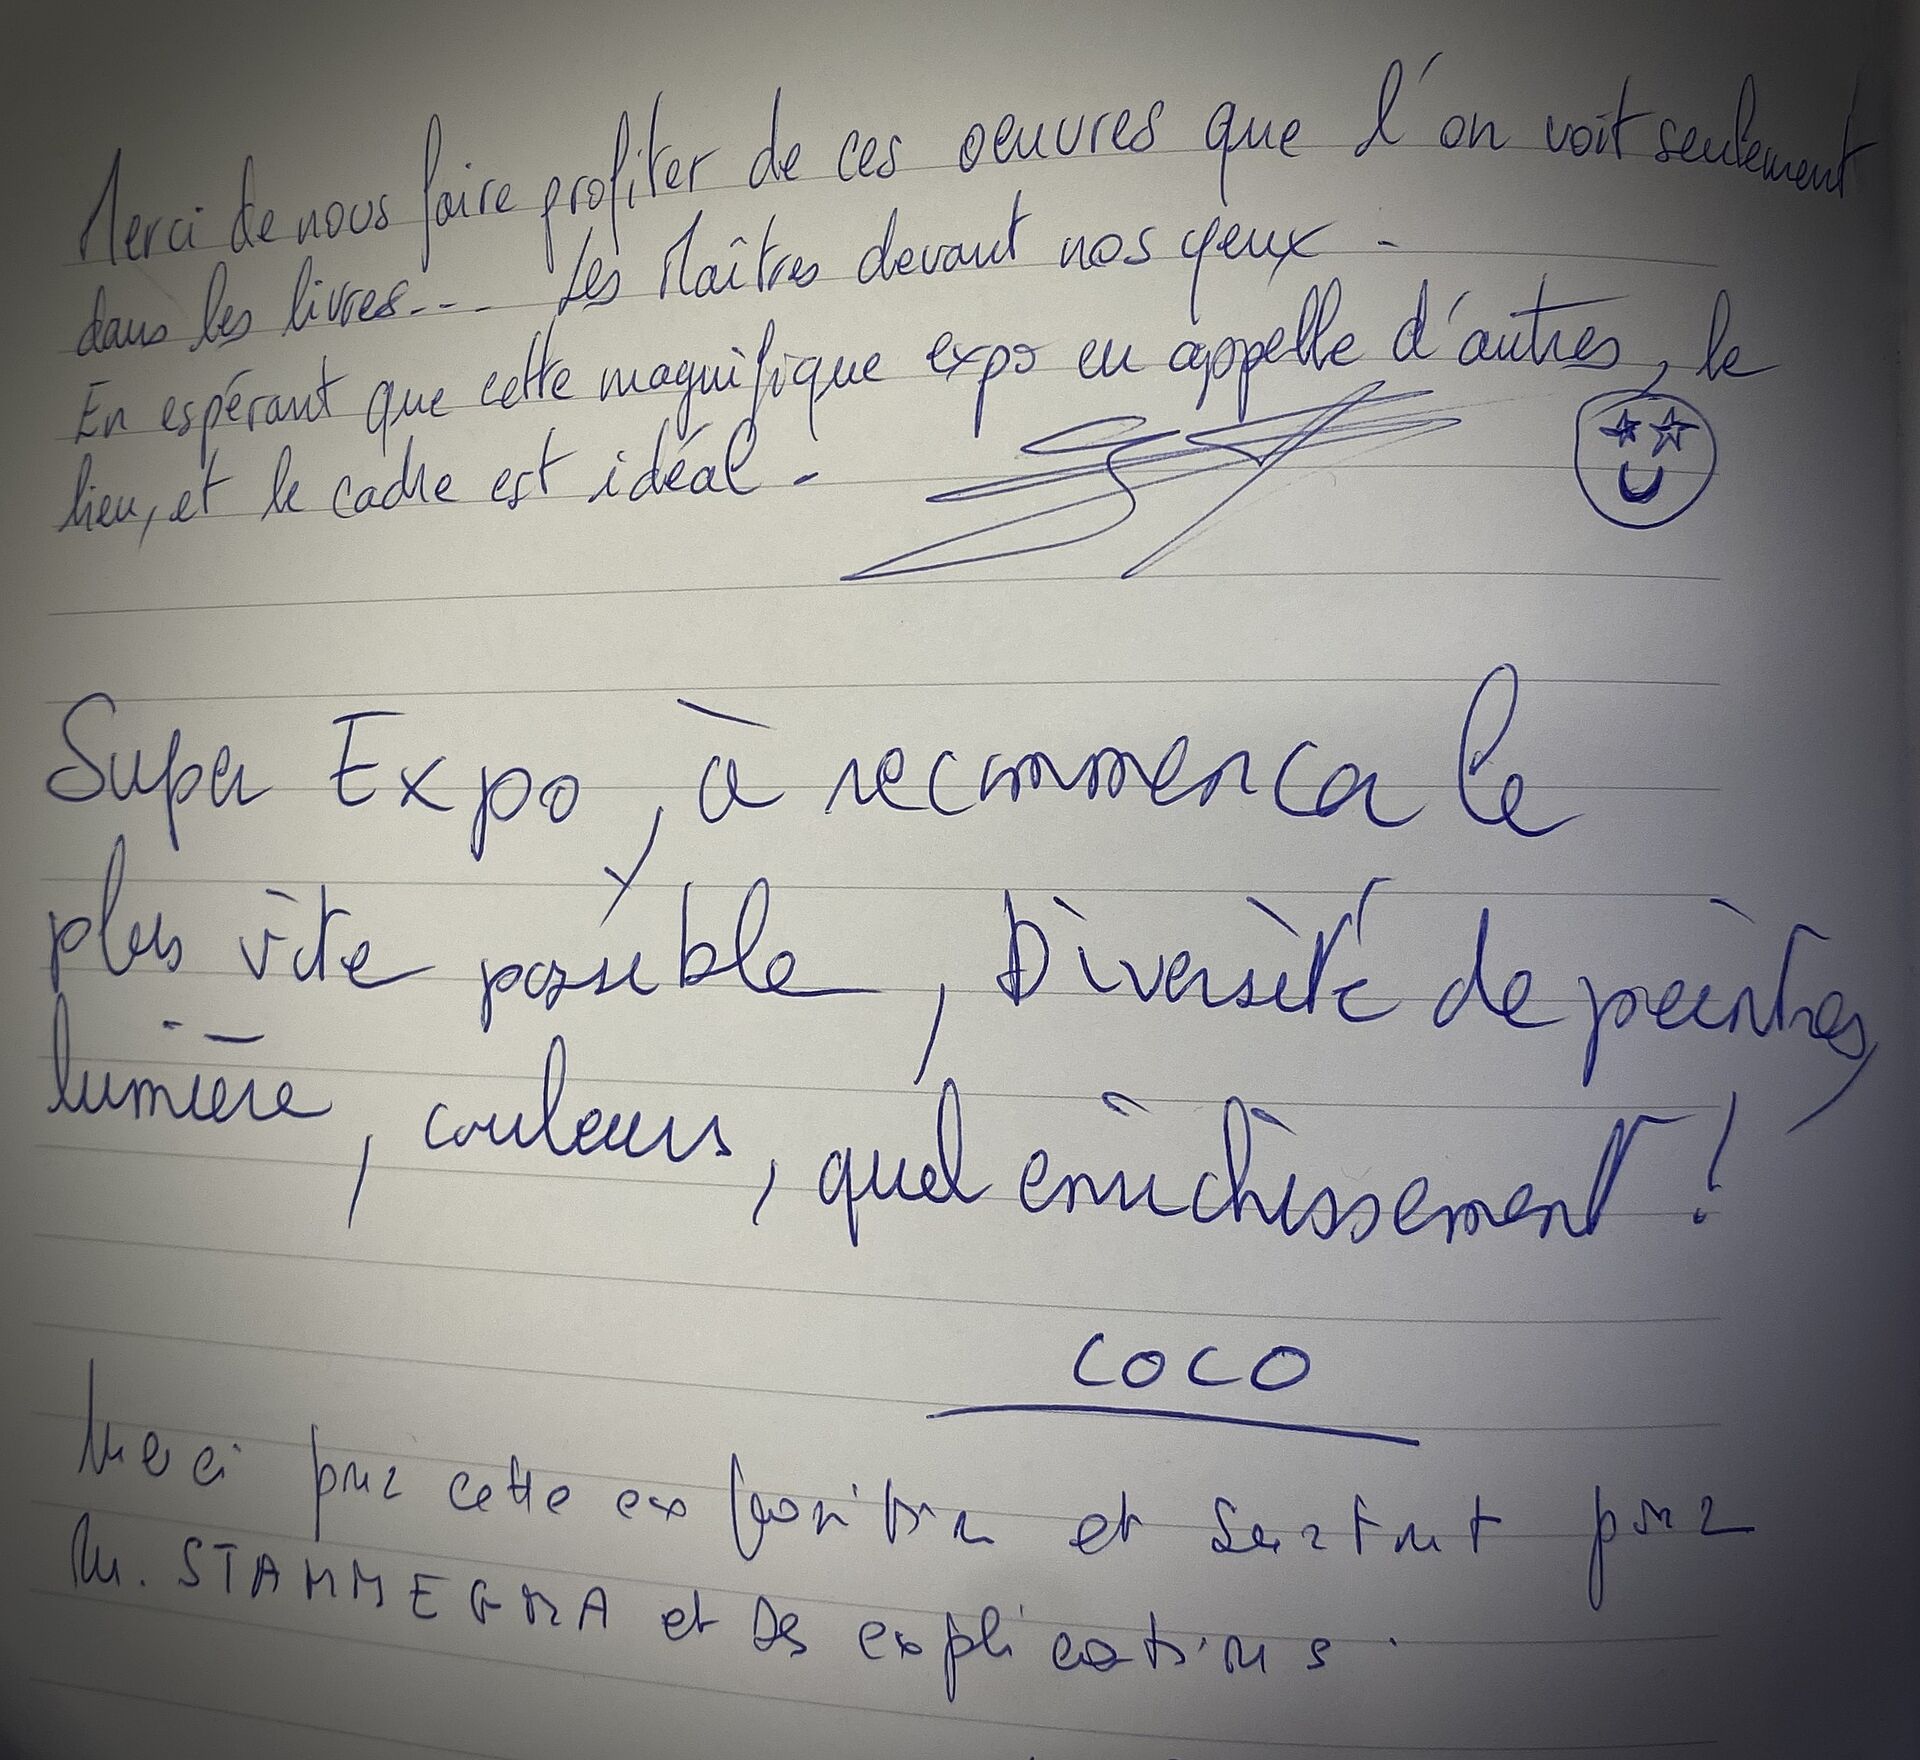 Merci de nous faire profiter de ces oeuvres que l'on voit seulement
dans les livres... Les Maîtres devant nos yeux.
En espérant que cette magnifique expo en appelle d'autres, le
lieu, et le cadre est idéal.
Super Expo, à recommencer le
plus vite possible, Diversité de peintres,
lumière, couleurs, quel enrichissement !
COCO
Merci pour cette exposition et surtout pour
M. STAMMEGNA et ses explications.